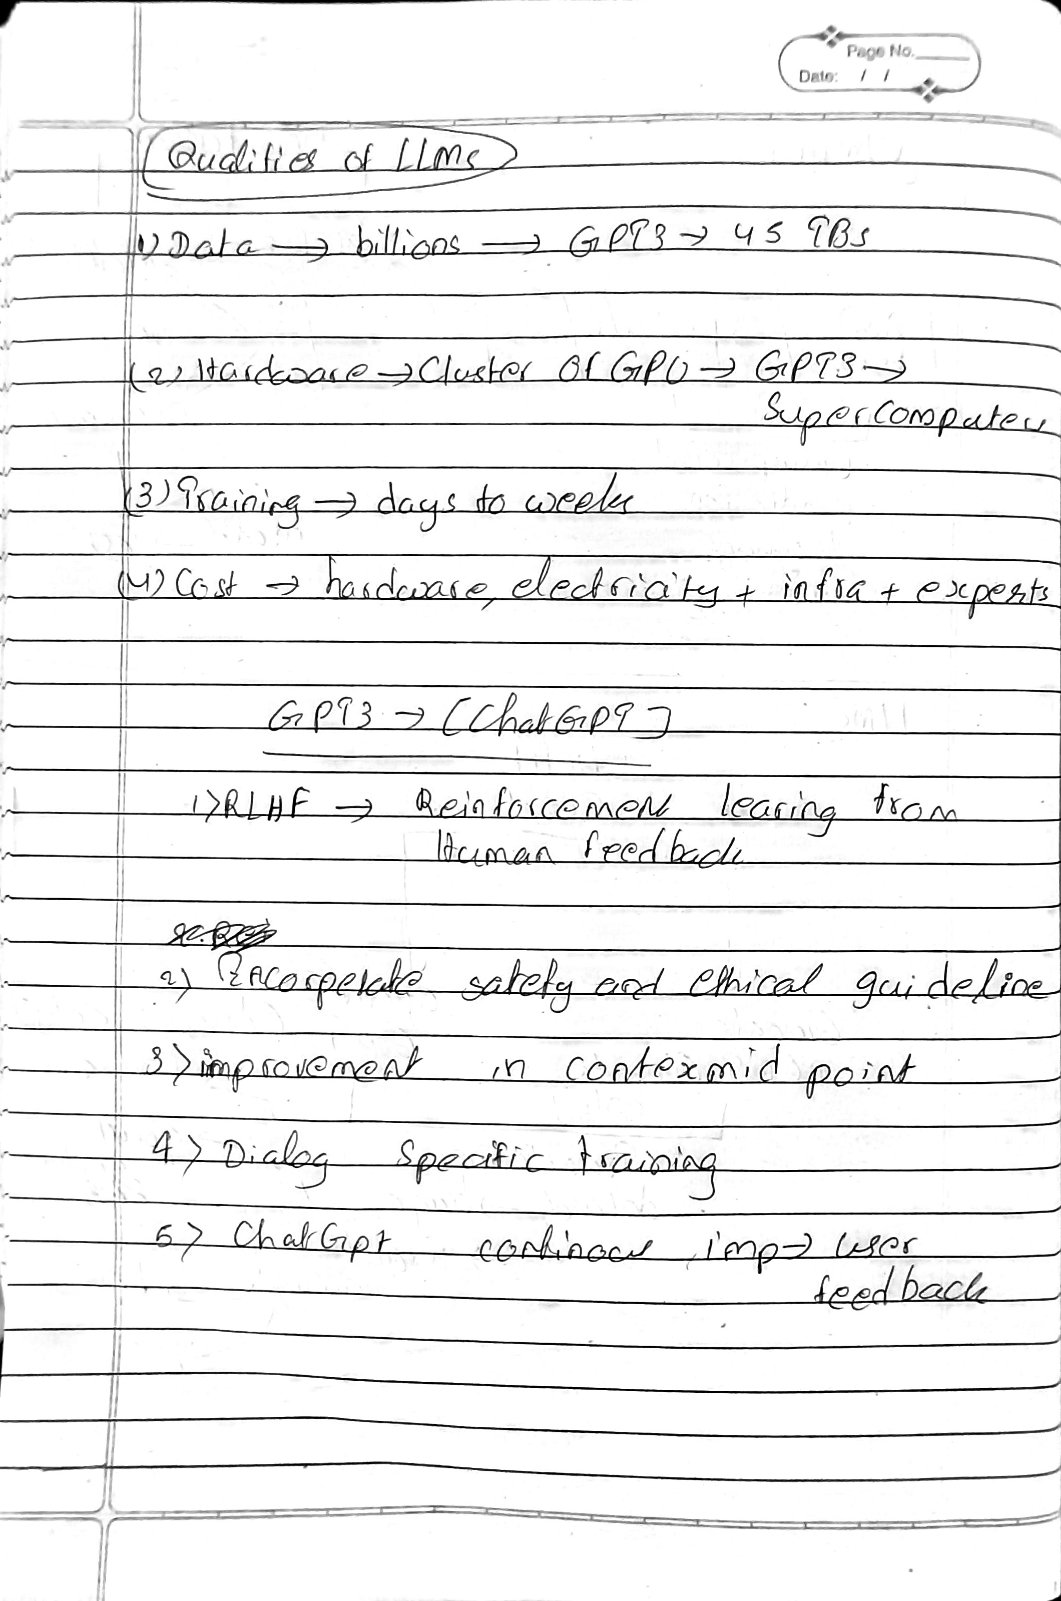 Page No.
Date: / /
Qualities of LLMs
1) Data → billions → GPT3 → 45 TBs
(2) Hardware → Cluster Of GPU → GPT3 →
Supercomputer
(3) Training → days to weeks
(4) Cost → hardware, electricity + infra + experts
GPT3 → [ChatGPT]
1) RLHF → Reinforcement learing from
Human feedback
2) Encorperate safety and ethical guideline
3) improvement in point
4) Dialog Specific training
5) ChatGpt continous imp → user
feedback